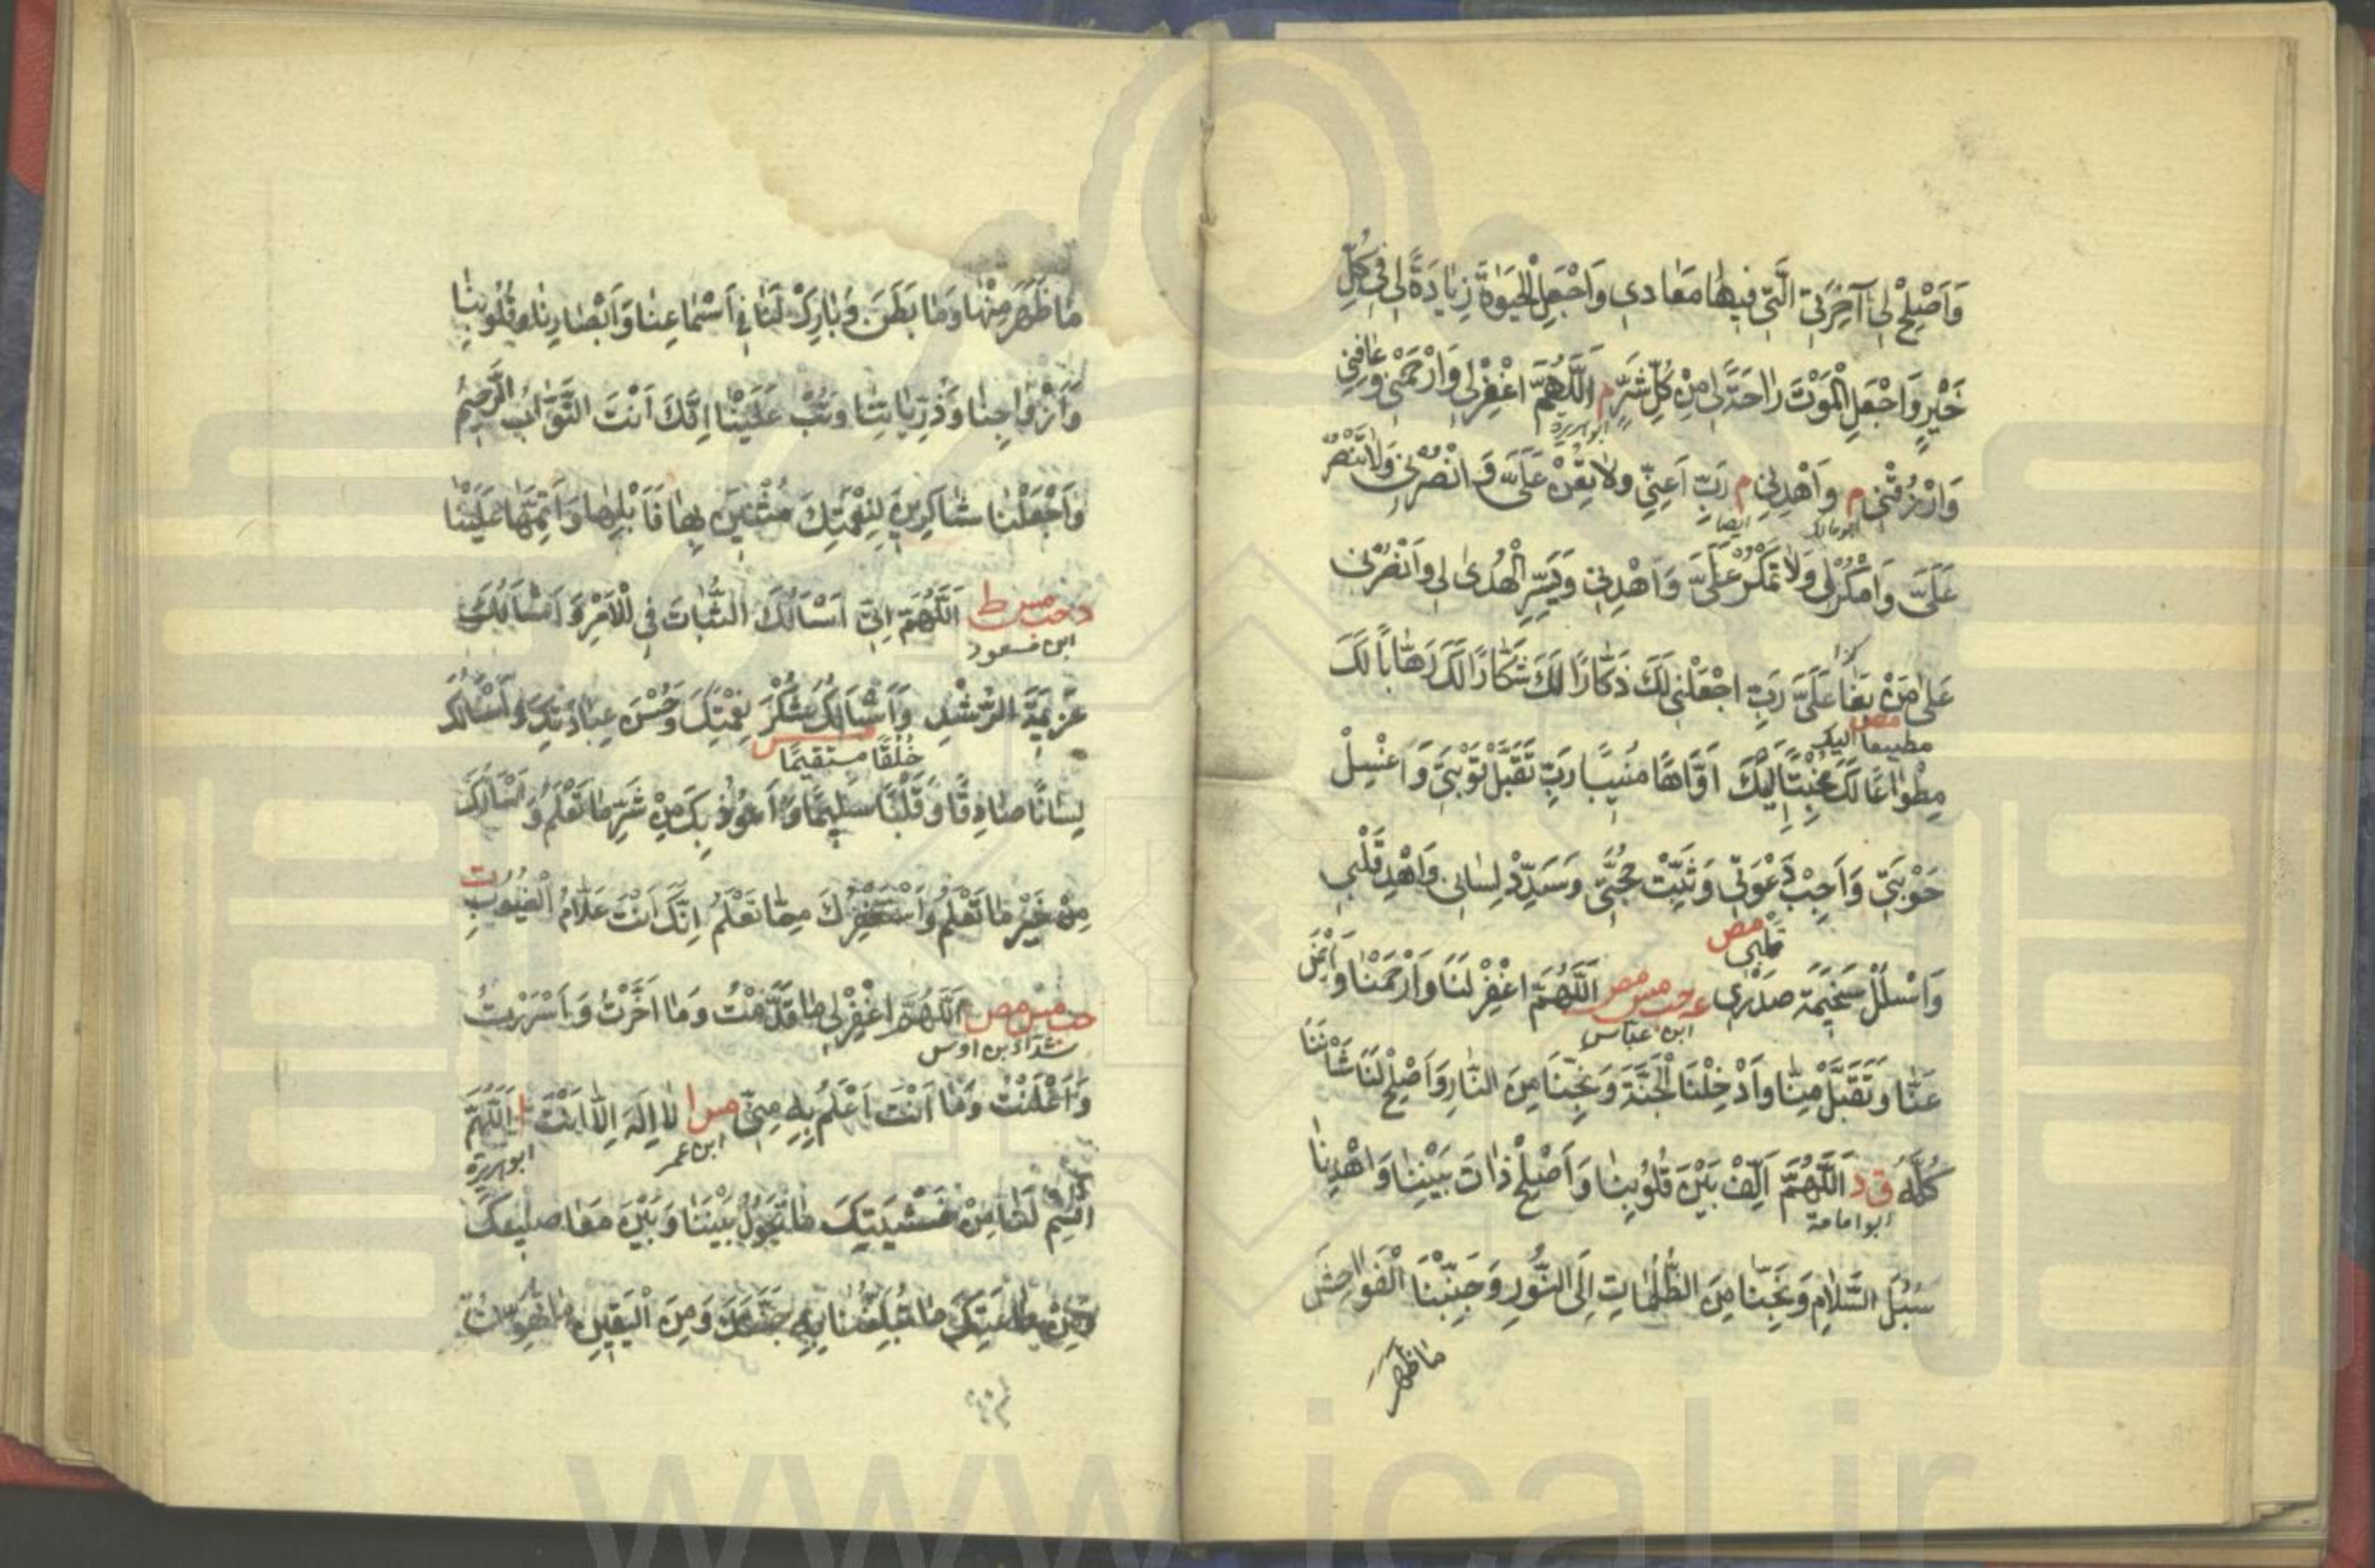 وَاَصْلِحْ لِي آخِرَتِيَ الَّتِي فِيهَا مَعَادِي وَاجْعَلِ الْحَيٰوةَ زِيَادَةً لِي فِي كُلِّ
خَيْرٍ وَاجْعَلِ الْمَوْتَ رَاحَةً لِي مِنْ كُلِّ شَرٍّ م اَللّٰهُمَّ اغْفِرْ لِي وَارْحَمْنِي وَعَافِنِي
ابو هريرة
وَارْزُقْنِي م وَاهْدِنِي م رَبِّ اَعِنِّي وَلَا تُعِنْ عَلَيَّ وَانْصُرْنِي وَلَا تَنْصُرْ
ابو مالك ايضا
عَلَيَّ وَامْكُرْ لِي وَلَا تَمْكُرْ عَلَيَّ وَاهْدِنِي وَيَسِّرِ الْهُدٰى لِي وَانْصُرْنِي
عَلٰى مَنْ بَغَا عَلَيَّ رَبِّ اجْعَلْنِي لَكَ ذَكَّارًا لَكَ شَكَّارًا لَكَ رَهَّابًا لَكَ
مص
مطيعا اليك
مِطْوَاعًا لَكَ مُخْبِتًا اِلَيْكَ اَوَّاهًا مُنِيبًا رَبِّ تَقَبَّلْ تَوْبَتِي وَاغْسِلْ
حَوْبَتِي وَاَجِبْ دَعْوَتِي وَثَبِّتْ حُجَّتِي وَسَدِّدْ لِسَانِي وَاهْدِ قَلْبِي
مص
قلبي
وَاسْلُلْ سَخِيمَةَ صَدْرِي عه حب مس مص اَللّٰهُمَّ اغْفِرْ لَنَا وَارْحَمْنَا وَارْضَ
ابن عباس
عَنَّا وَتَقَبَّلْ مِنَّا وَاَدْخِلْنَا الْجَنَّةَ وَنَجِّنَا مِنَ النَّارِ وَاَصْلِحْ لَنَا شَانَنَا
كُلَّهُ ق د اَللّٰهُمَّ اَلِّفْ بَيْنَ قُلُوبِنَا وَاَصْلِحْ ذَاتَ بَيْنِنَا وَاهْدِنَا
ابو امامة
سُبُلَ السَّلَامِ وَنَجِّنَا مِنَ الظُّلُمَاتِ اِلَى النُّورِ وَجَنِّبْنَا الْفَوَاحِشَ
ما ظهر
مَا ظَهَرَ مِنْهَا وَمَا بَطَنَ وَبَارِكْ لَنَا فِي اَسْمَاعِنَا وَاَبْصَارِنَا وَقُلُوبِنَا
وَاَزْوَاجِنَا وَذُرِّيَّاتِنَا وَتُبْ عَلَيْنَا اِنَّكَ اَنْتَ التَّوَّابُ الرَّحِيمُ
وَاجْعَلْنَا شَاكِرِينَ لِنِعْمَتِكَ مُثْنِينَ بِهَا قَابِلِيهَا وَاَتِمَّهَا عَلَيْنَا
د حب مس ط اَللّٰهُمَّ اِنِّي اَسْاَلُكَ الثَّبَاتَ فِي الْاَمْرِ وَاَسْاَلُكَ
ابن مسعود
عَزِيمَةَ الرُّشْدِ وَاَسْاَلُكَ شُكْرَ نِعْمَتِكَ وَحُسْنَ عِبَادَتِكَ وَاَسْاَلُكَ
مس
خُلُقًا مستقيمًا
لِسَانًا صَادِقًا وَقَلْبًا سَلِيمًا وَاَعُوذُ بِكَ مِنْ شَرِّ مَا تَعْلَمُ وَاَسْاَلُكَ
مِنْ خَيْرِ مَا تَعْلَمُ وَاَسْتَغْفِرُكَ مِمَّا تَعْلَمُ اِنَّكَ اَنْتَ عَلَّامُ الْغُيُوبِ ت
حب مس مص اَللّٰهُمَّ اغْفِرْ لِي مَا قَدَّمْتُ وَمَا اَخَّرْتُ وَاَسْرَرْتُ
شداد بن اوس
وَاَعْلَنْتُ وَمَا اَنْتَ اَعْلَمُ بِهِ مِنِّي مس ا لَا اِلٰهَ اِلَّا اَنْتَ ا اَللّٰهُمَّ
ابن عمر ابو هريرة
اقْسِمْ لَنَا مِنْ خَشْيَتِكَ مَا تَحُولُ بَيْنَنَا وَبَيْنَ مَعَاصِيكَ
وَمِنْ طَاعَتِكَ مَا تُبَلِّغُنَا بِهِ جَنَّتَكَ وَمِنَ الْيَقِينِ مَا تُهَوِّنُ
www.ical.ir